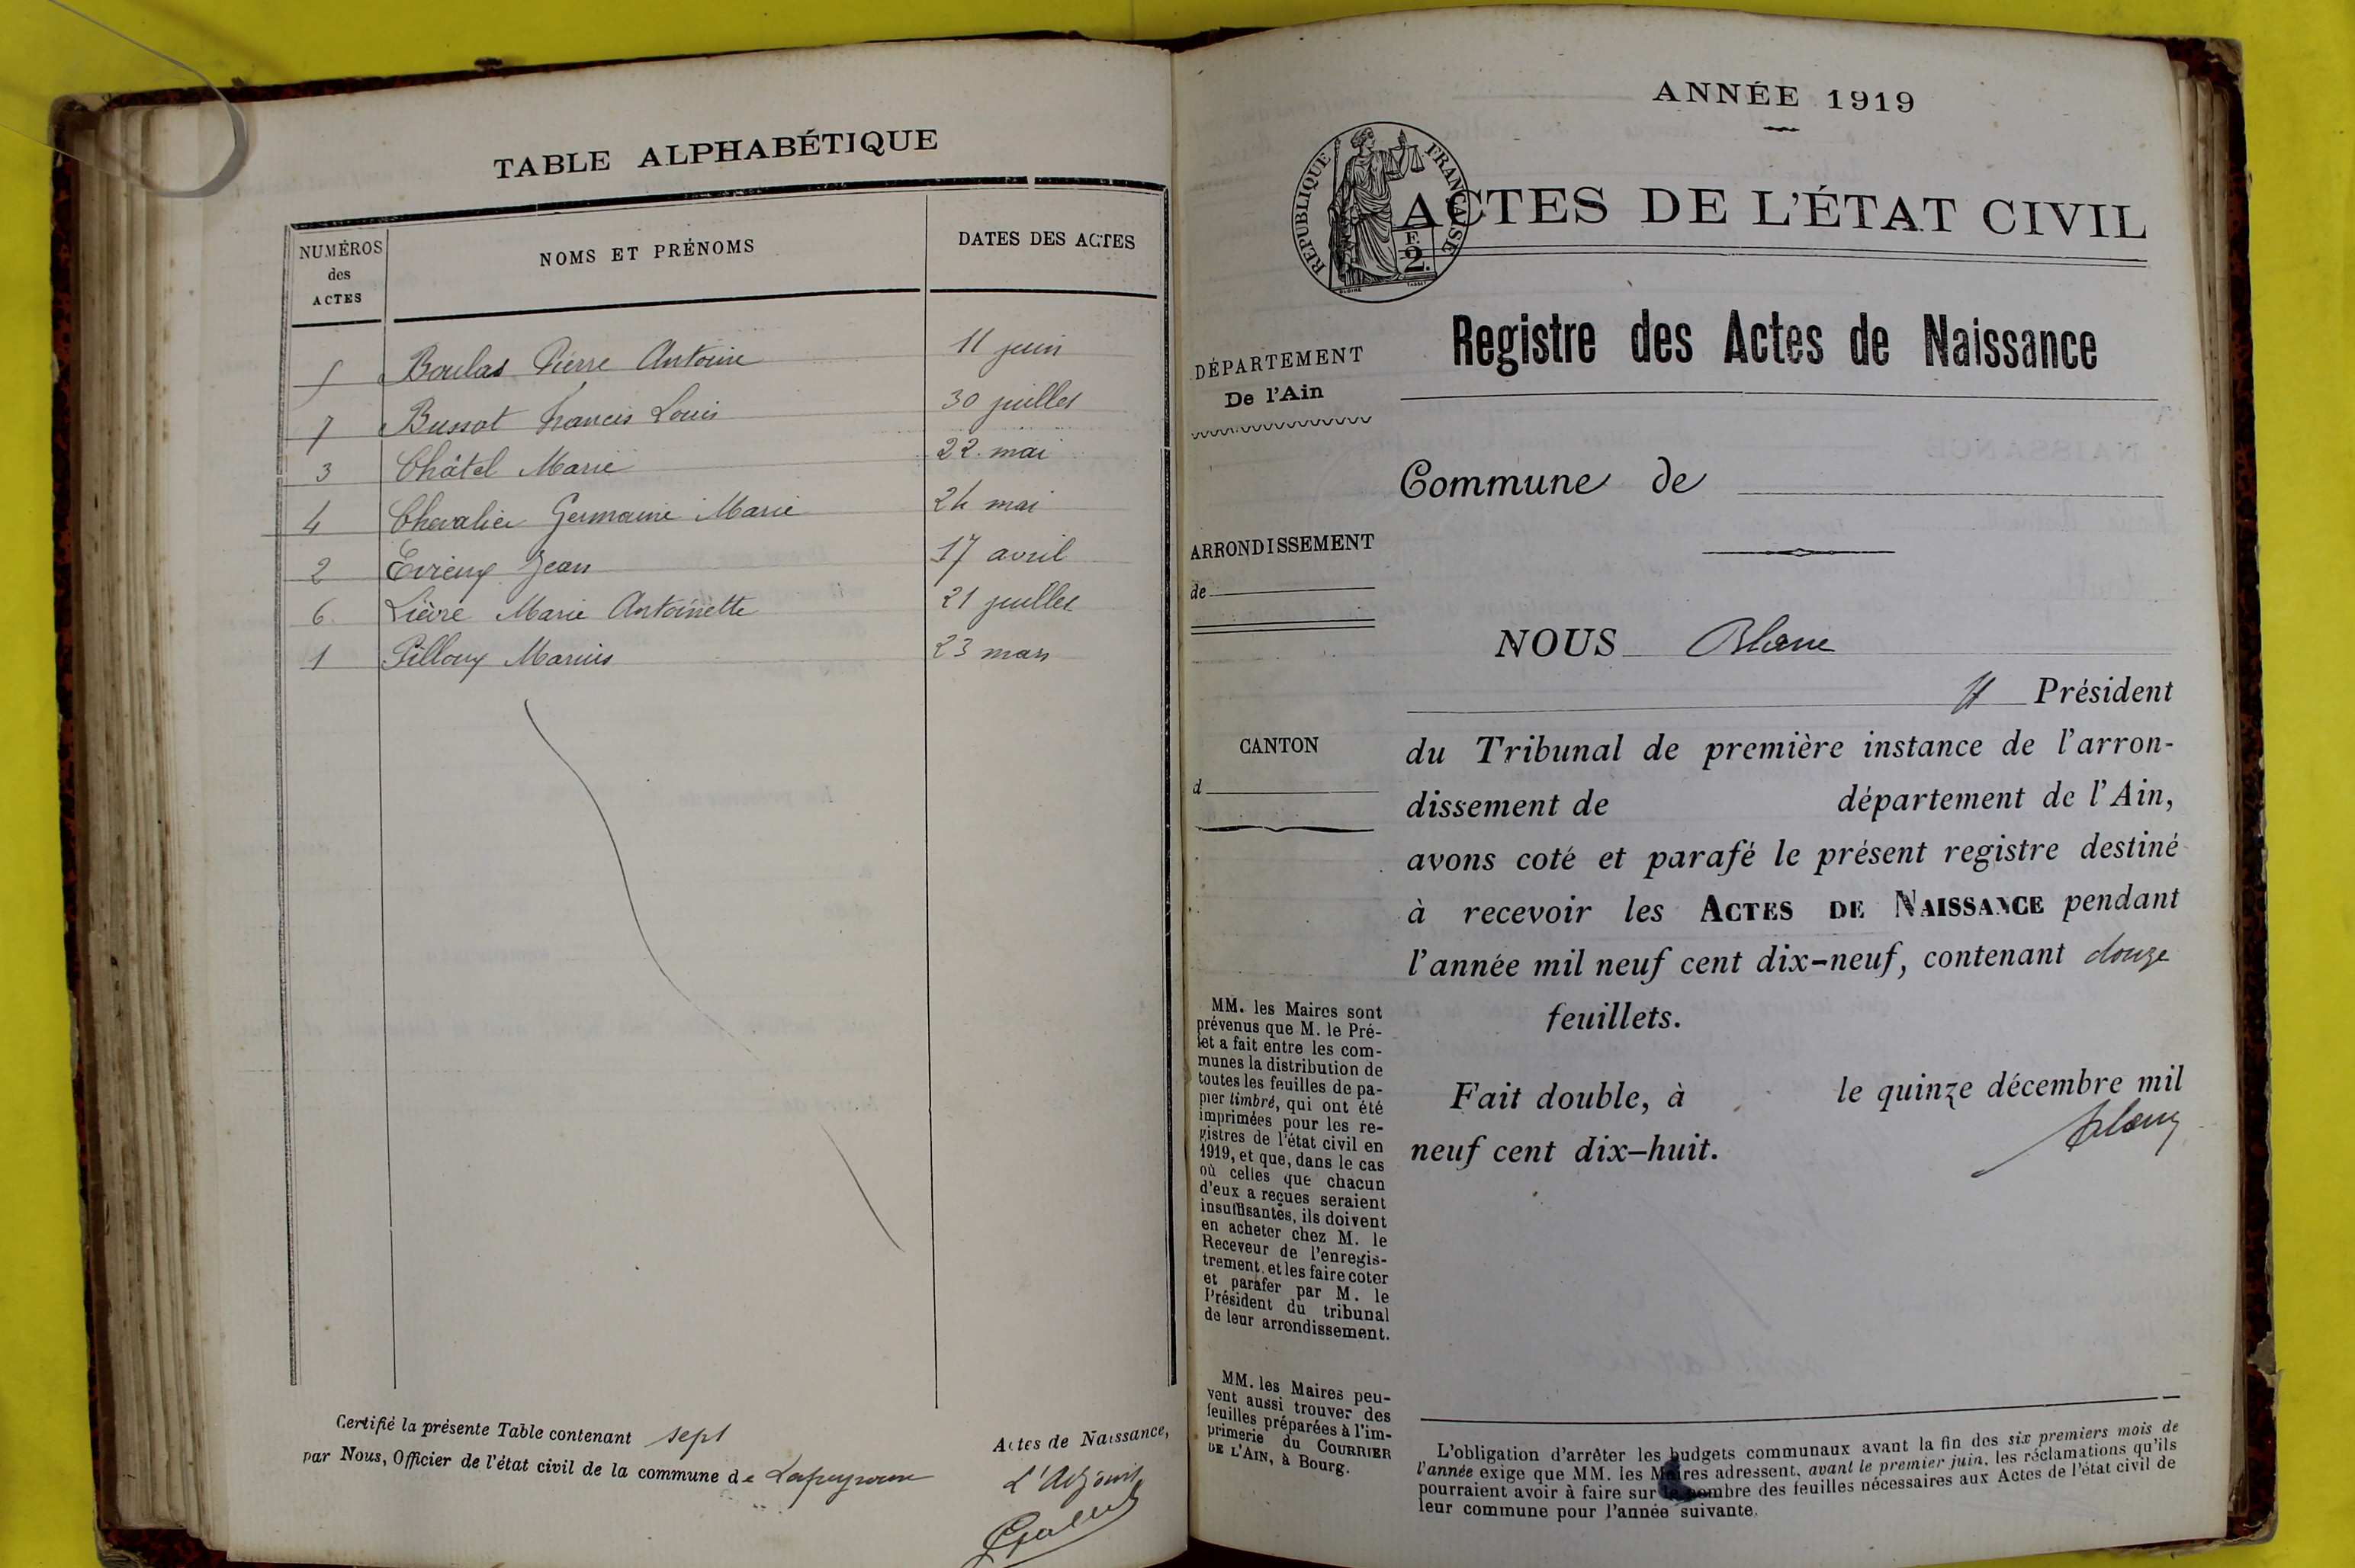 TABLE ALPHABÉTIQUE
NUMÉROS des ACTES NOMS ET PRÉNOMS DATES DES ACTES
5 Boulas Pierre Antoine 11 juin
7 Bussot Francis Louis 30 juillet
3 Châtel Marie 22 mai
4 Chevalier Germaine Marie 24 mai
2 Evieux Jean 17 avril
6 Lièvre Marie Antoinette 21 juillet
1 Pilloux Marius 23 mars
Certifié la présente Table contenant sept Actes de Naissance,
par Nous, Officier de l'état civil de la commune de Lapeyrouse
L'Adjoint
ANNÉE 1919
RÉPUBLIQUE FRANÇAISE
F. 2.
ACTES DE L'ÉTAT CIVIL
Registre des Actes de Naissance
DÉPARTEMENT
De l'Ain
ARRONDISSEMENT
de
CANTON
d
MM. les Maires sont
prévenus que M. le Pré-
fet a fait entre les com-
munes la distribution de
toutes les feuilles de pa-
pier timbré, qui ont été
imprimées pour les re-
gistres de l'état civil en
1919, et que, dans le cas
où celles que chacun
d'eux a reçues seraient
insuffisantes, ils doivent
en acheter chez M. le
Receveur de l'enregis-
trement, et les faire coter
et parafer par M. le
Président du tribunal
de leur arrondissement.
MM. les Maires peu-
vent aussi trouver des
feuilles préparées à l'im-
primerie du COURRIER
DE L'AIN, à Bourg.
Commune de
NOUS Blanc
Président
du Tribunal de première instance de l'arron-
dissement de département de l'Ain,
avons coté et parafé le présent registre destiné
à recevoir les ACTES DE NAISSANCE pendant
l'année mil neuf cent dix-neuf, contenant douze
feuillets.
Fait double, à le quinze décembre mil
neuf cent dix-huit.
Blanc
L'obligation d'arrêter les budgets communaux avant la fin des six premiers mois de
l'année exige que MM. les Maires adressent, avant le premier juin, les réclamations qu'ils
pourraient avoir à faire sur le nombre des feuilles nécessaires aux Actes de l'état civil de
leur commune pour l'année suivante.